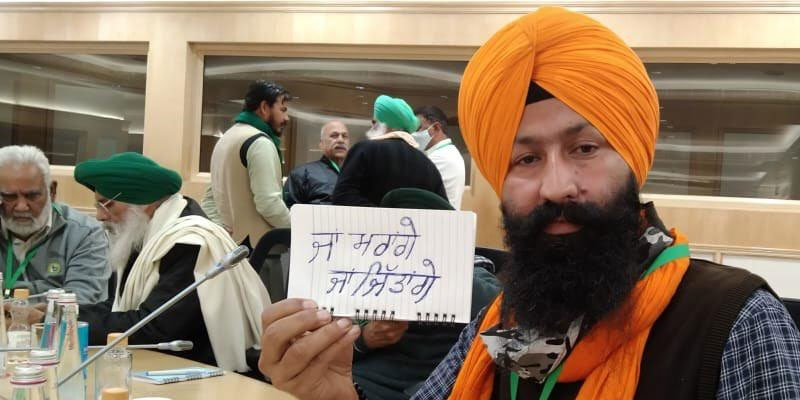 ਜਾਂ ਮਰਾਂਗੇ
ਜਾਂ ਜਿੱਤਾਂਗੇ